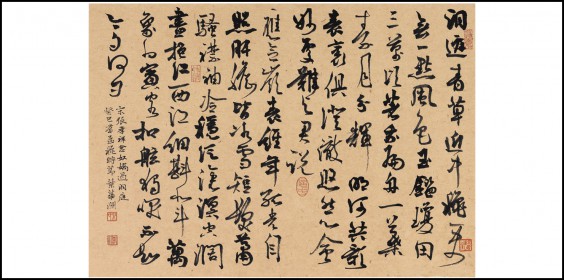 洞庭青草近中秋更
無一點風色玉鑑瓊田
三萬頃著我扁舟一葉
素月分輝明河共影
表裏俱澄澈悠然心會
妙處難與君說
應念嶺表經年孤光自
照肝膽皆冰雪短髮蕭
騷襟袖冷穩泛滄溟空闊
盡挹西江細斟北斗萬
象為賓客扣舷獨嘯不知
今夕何夕
宋張孝祥念奴嬌過洞庭
癸巳